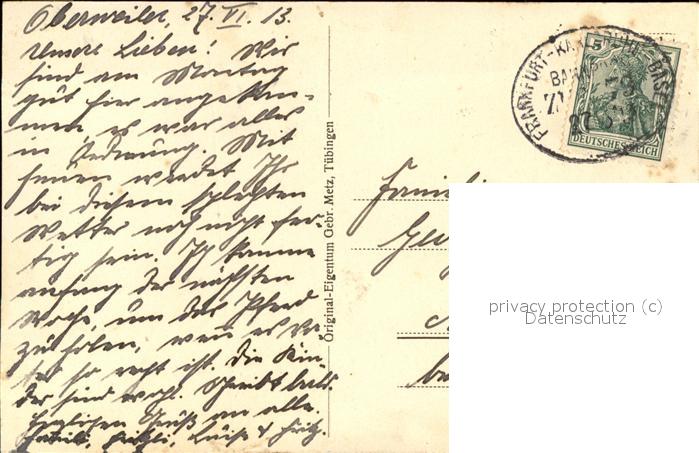 Oberweiler, 27. VI. 13.
Unsere Lieben! Wir
sind am Montag
gut hier angekom-
men, es war alles
in Ordnung. Mit
heuen werdet Ihr
bei diesem schlechten
Wetter noch nicht fer-
tig sein. Ich komme
anfang der nächsten
Woche, um das Pferd
zu holen, wenn es Va-
ter so recht ist. Die Kin-
der sind wohl. Schreibt bald.
Herzlichen Gruß an alle.
Fritzli, Luise & Fritz.
Original-Eigentum Gebr. Metz, Tübingen
FRANKFURT-KARLSRUHE-BASEL
BAHNPOST
27
5
DEUTSCHES REICH
Famili
privacy protection (c)
Datenschutz